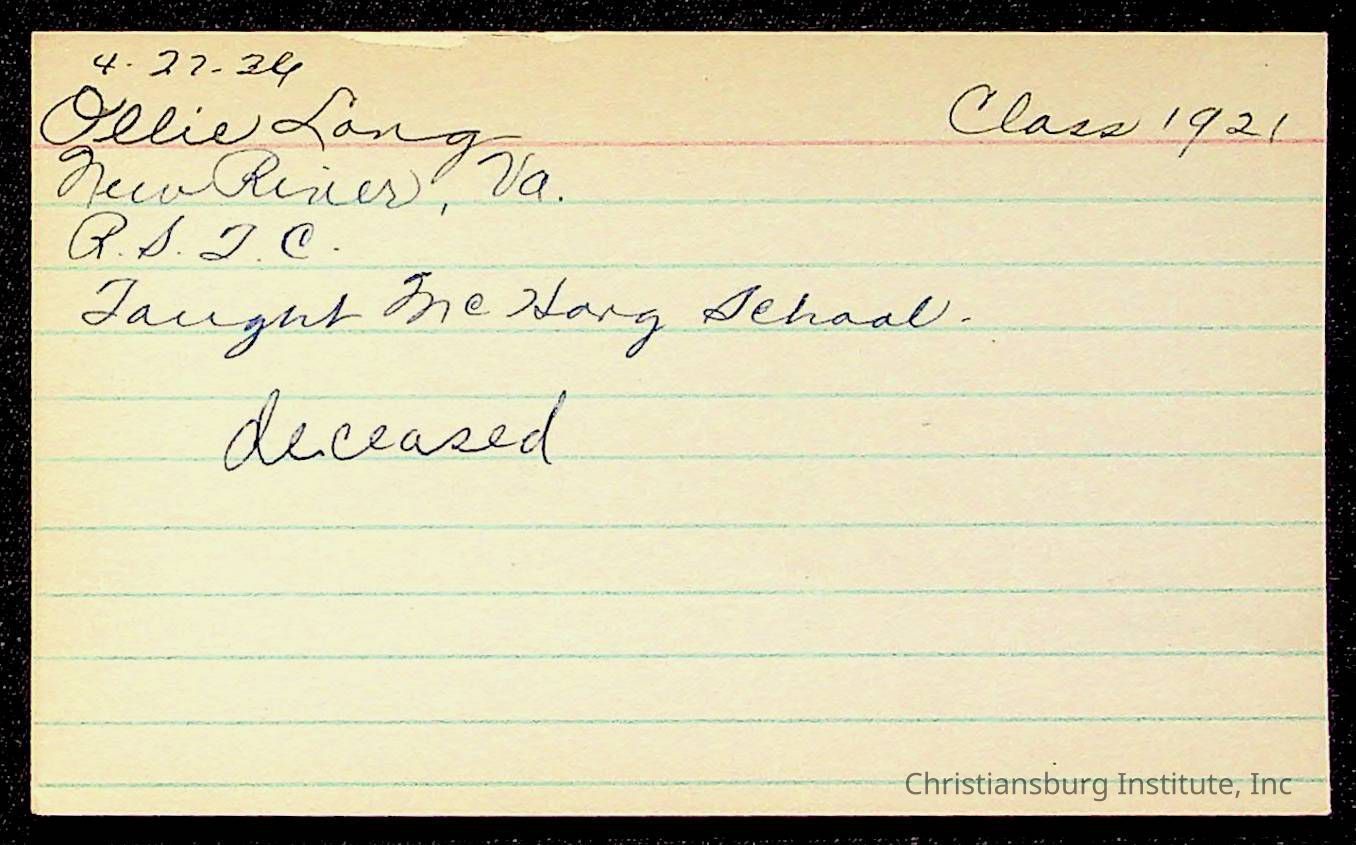 4-27-36
Ollie Long Class 1921
New River, Va.
R.S.T.C.
Taught McHarg School.
deceased
Christiansburg Institute, Inc